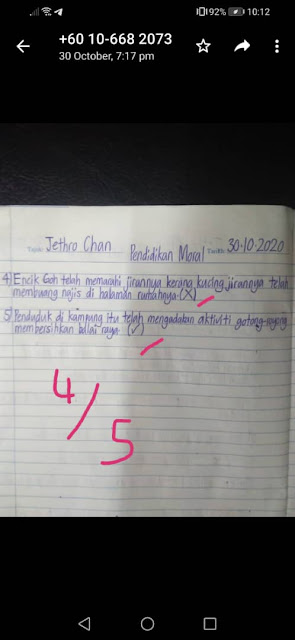 92% 10:12
+60 10-668 2073
30 October, 7:17 pm
Jethro Chan Pendidikan Moral Tarikh: 30-10-2020
4) Encik Goh telah memaahi jirannya kerana kucing jirannya telah
membuang najis di halaman rumahnya. (X)
5) Penduduk di kampung itu telah mengadakan aktiviti gotong-royong
membersihkan balai raya. (✓)
4/5